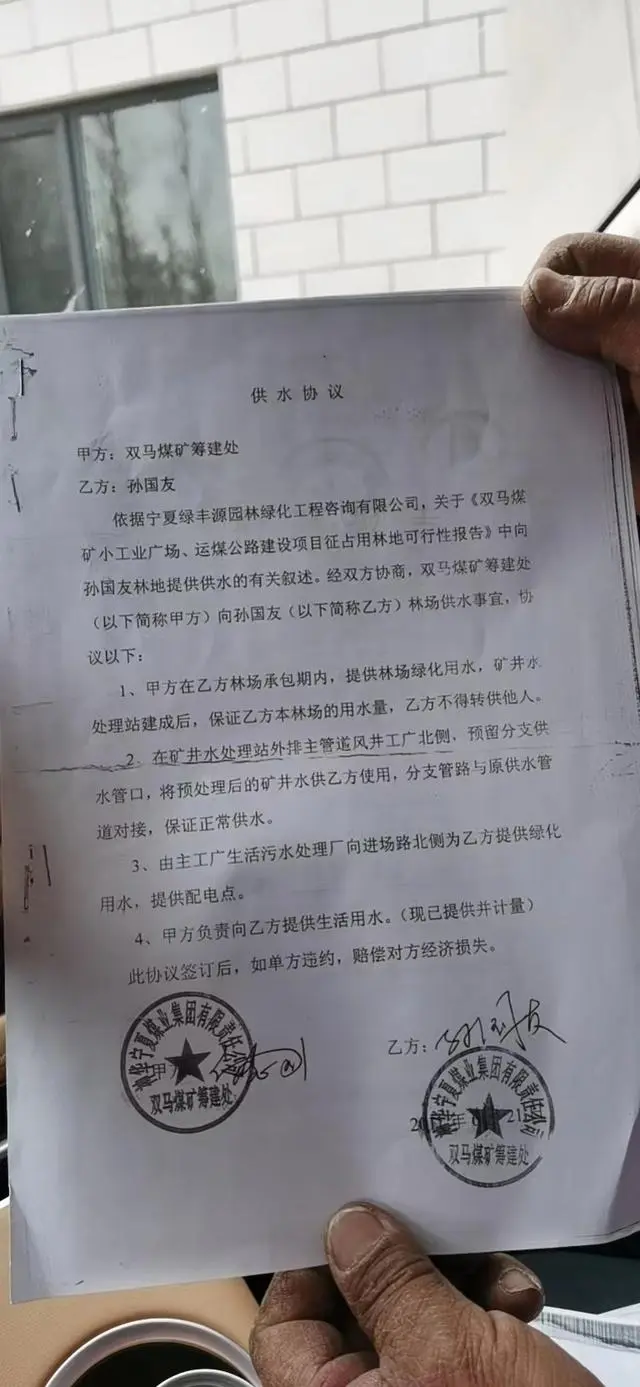 供水协议
甲方：双马煤矿筹建处
乙方：孙国友
依据宁夏绿丰源园林绿化工程咨询有限公司，关于《双马煤
矿小工业广场、运煤公路建设项目征占用林地可行性报告》中向
孙国友林地提供供水的有关叙述。经双方协商，双马煤矿筹建处
（以下简称甲方）向孙国友（以下简称乙方）林场供水事宜，协
议以下：
1、甲方在乙方林场承包期内，提供林场绿化用水，矿井水
处理站建成后，保证乙方本林场的用水量，乙方不得转供他人。
2、在矿井水处理站外排主管道风井工广北侧，预留分支供
水管口，将预处理后的矿井水供乙方使用，分支管路与原供水管
道对接，保证正常供水。
3、由主工广生活污水处理厂向进场路北侧为乙方提供绿化
用水，提供配电点。
4、甲方负责向乙方提供生活用水。（现已提供并计量）
此协议签订后，如单方违约，赔偿对方经济损失。
神华宁夏煤业集团有限责任公司
双马煤矿筹建处
乙方：孙国友
神华宁夏煤业集团有限责任公司
双马煤矿筹建处